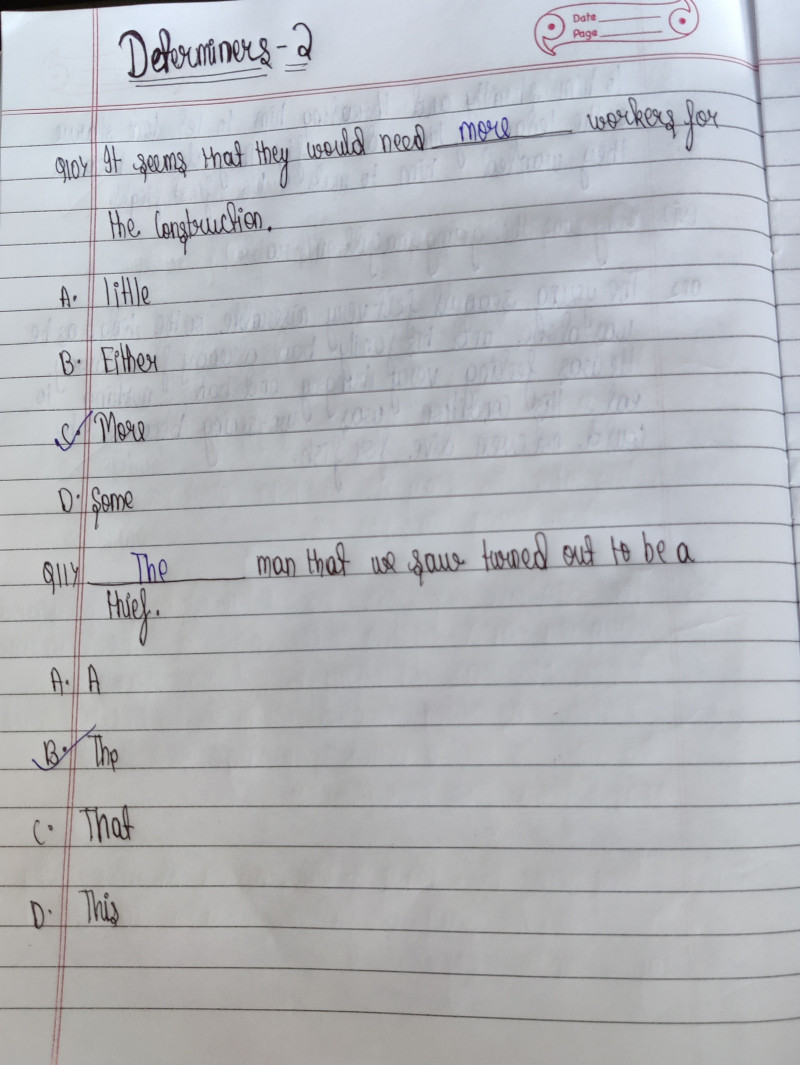 Date
Page
Determiners - 2
Q10) It seems that they would need more workers for
the Construction.
A. little
B. Either
C. More
D. Some
Q11) The man that we saw turned out to be a
thief.
A. A
B. The
C. That
D. This